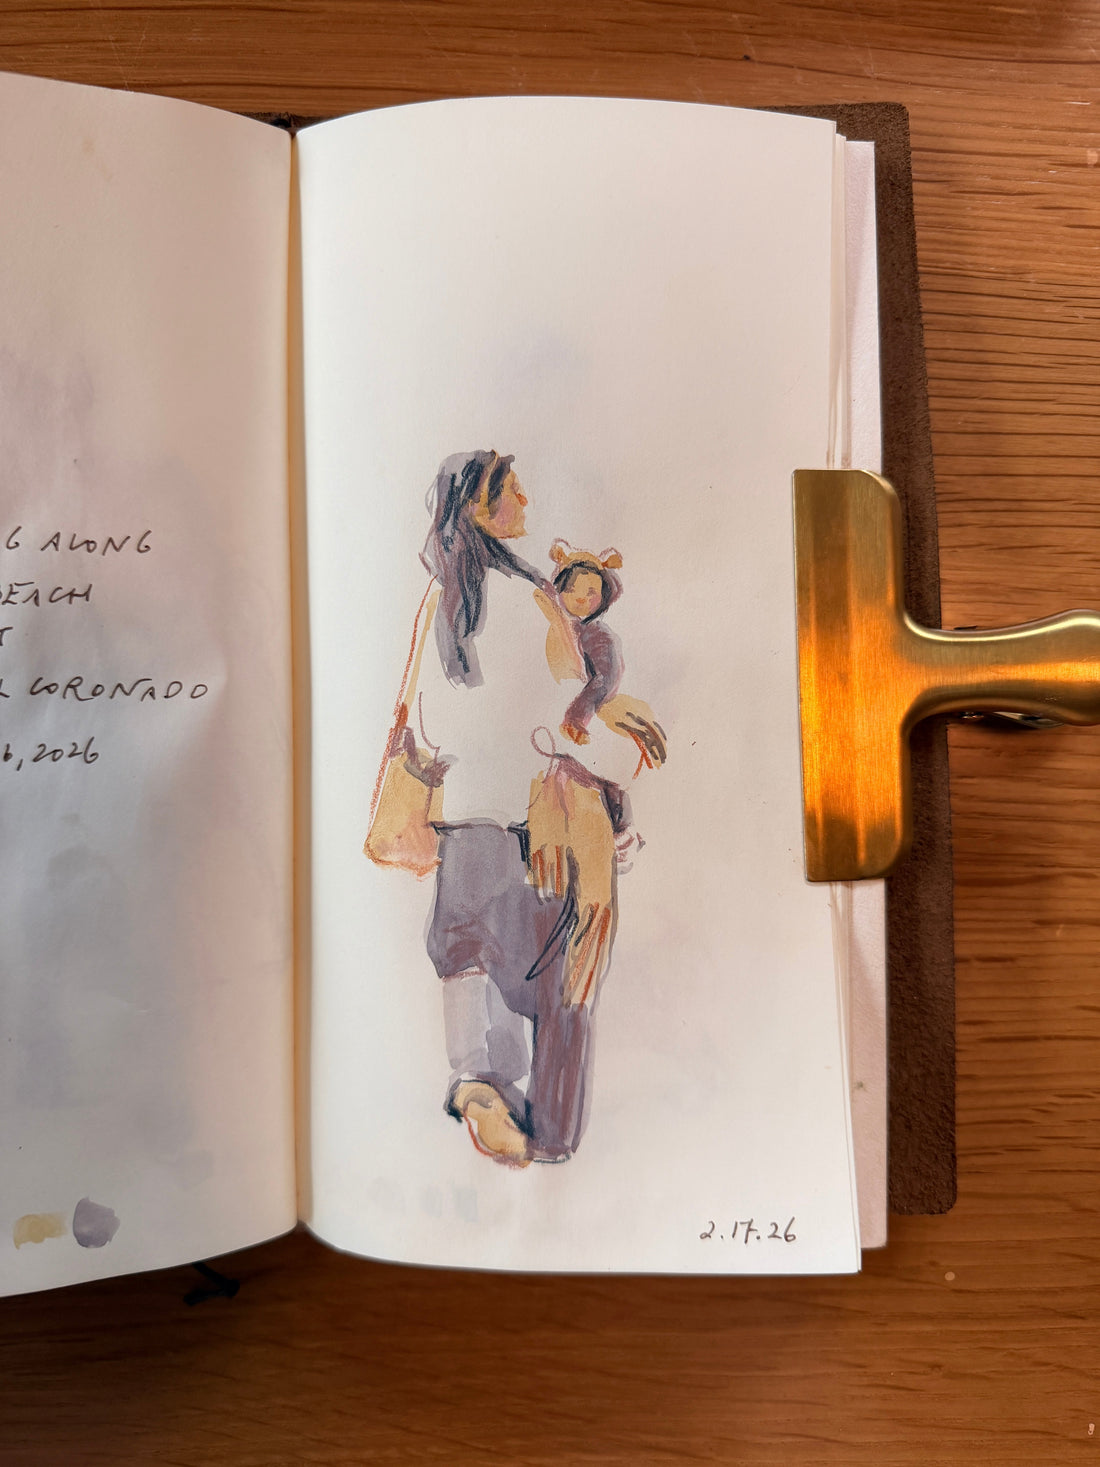 G ALONG
BEACH
T
L CORONADO
6, 2026
2.17.26